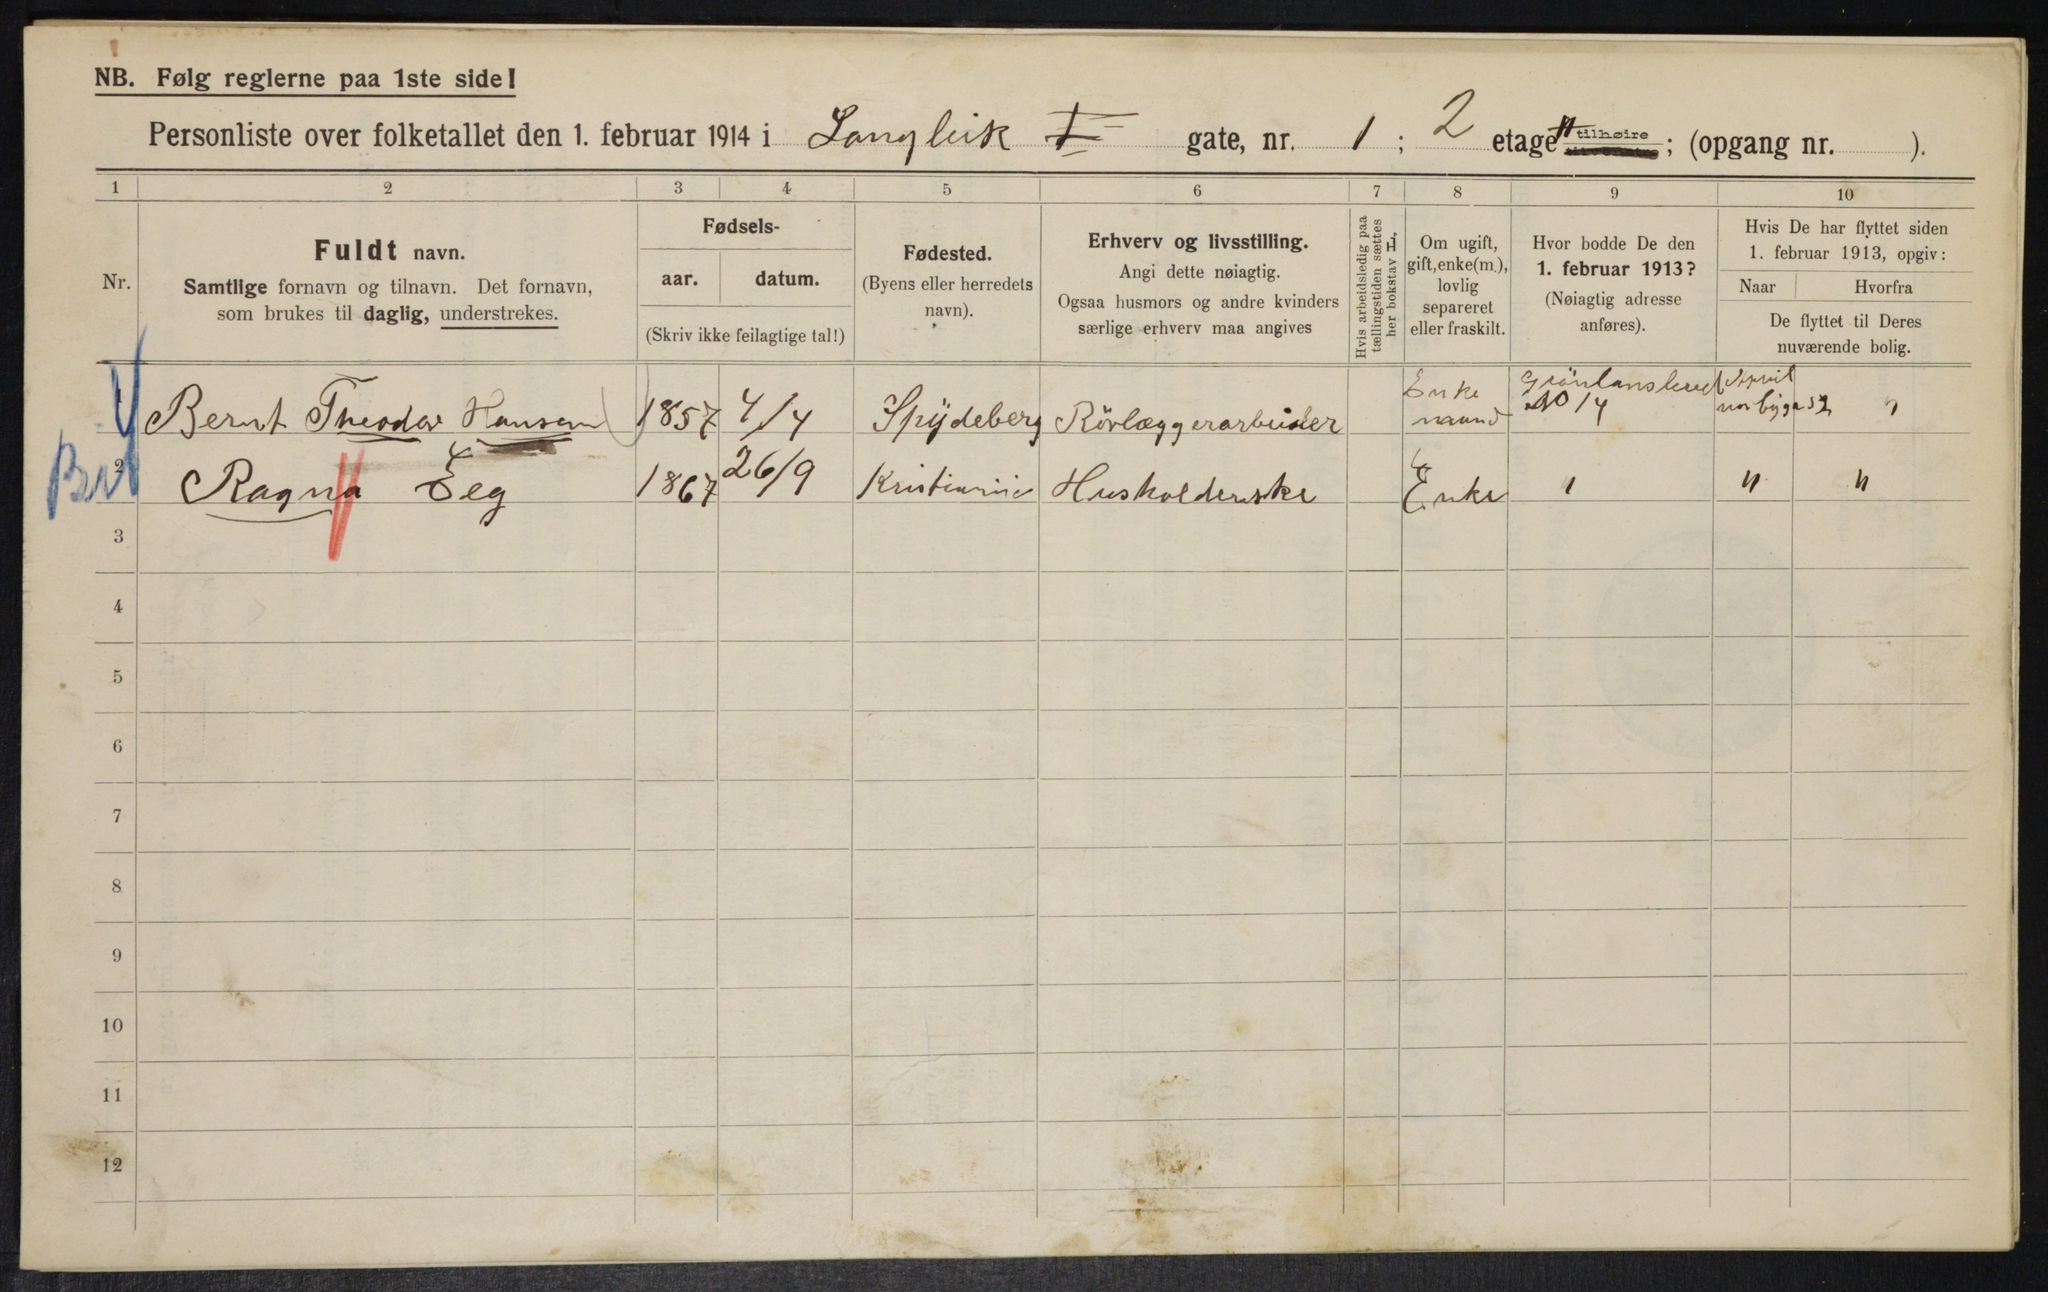 NB. Følg reglerne paa 1ste side!
Personliste over folketallet den 1. februar 1914 i Langleik I gate, nr. 1 ; 2 etage tilhøire ; (opgang nr. ).
1 2 3 4 5 6 7 8 9 10
Nr.
Fuldt navn.
Samtlige fornavn og tilnavn. Det fornavn,
som brukes til daglig, understrekes.
Fødsels-
aar. datum.
(Skriv ikke feilagtige tal!)
Fødested.
(Byens eller herredets
navn).
Erhverv og livsstilling.
Angi dette nøiagtig.
Ogsaa husmors og andre kvinders
særlige erhverv maa angives
Hvis arbeidsledig paa
tællingstiden sættes
her bokstav L.
Om ugift,
gift, enke(m.),
lovlig
separeret
eller fraskilt.
Hvor bodde De den
1. februar 1913?
(Nøiagtig adresse
anføres).
Hvis De har flyttet siden
1. februar 1913, opgiv:
Naar Hvorfra
De flyttet til Deres
nuværende bolig.
Bernt Theodor Hansen 1857 4/4 Spydeberg Rörlæggerarbeider Enke
mand Grönlansleret
No 14 April
2 Ragna Eeg 1867 26/9 Kristiania Husholderske Enke " " "
3
4
5
6
7
8
9
10
11
12